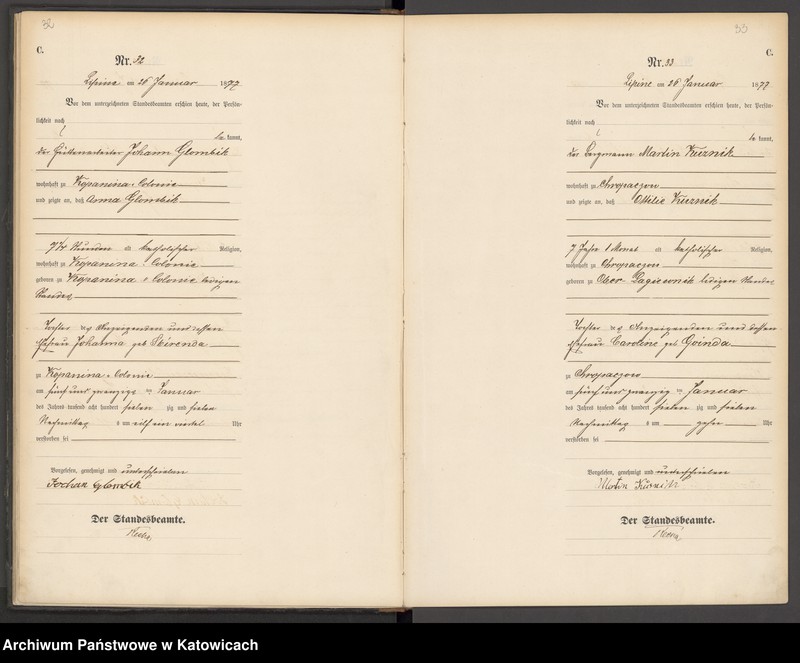 32
C.
Nr. 32
Lipine am 26 Januar 1877
Vor dem unterzeichneten Standesbeamten erschien heute, der Persön-
lichkeit nach
be kannt,
der Hüttenarbeiter Johann Glombik
wohnhaft zu Kopanina-Colonie
und zeigte an, daß Anna Glombik
7¾ Stunden alt katholischer Religion,
wohnhaft zu Kopanina-Colonie
geboren zu Kopanina-Colonie ledigen
Standes
Tochter des Anzeigenden und dessen
Ehefrau Johanna geb
zu Kopanina-Colonie
am fünf und zwanzigs ten Januar
des Jahres tausend acht hundert sieben zig und sieben
Nachmittag s um elf ein viertel Uhr
verstorben sei
Vorgelesen, genehmigt und unterschrieben
Johan Glombik
Der Standesbeamte.
33
C.
Nr. 33
Lipine am 26 Januar 1877
Vor dem unterzeichneten Standesbeamten erschien heute, der Persön-
lichkeit nach
be kannt,
der Bergmann Martin Kuznik
wohnhaft zu Chropaczow
und zeigte an, daß Ottilie Kuznik
7 Jahr 1 Monat alt katholischer Religion,
wohnhaft zu Chropaczow
geboren zu Ober Lagiewnik ledigen Standes
Tochter des Anzeigenden und dessen
Ehefrau Caroline geb Goinda
zu Chropaczow
am fünf und zwanzig ten Januar
des Jahres tausend acht hundert sieben zig und sieben
Nachmittag s um zehn Uhr
verstorben sei
Vorgelesen, genehmigt und unterschrieben
Der Standesbeamte.
Archiwum Państwowe w Katowicach